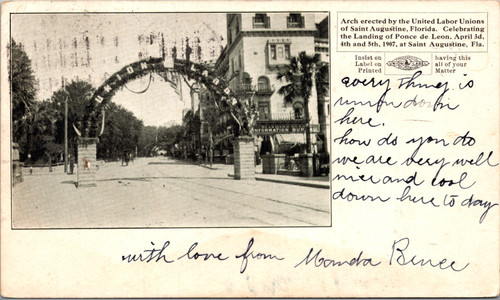 Arch erected by the United Labor Unions
of Saint Augustine, Florida. Celebrating
the Landing of Ponce de Leon, April 3d,
4th and 5th, 1907, at Saint Augustine, Fla.
Insist on having this
Label on all of your
Printed Matter
every thing is
down
here.
how do you do
we are very well
nice and cool
down here to day
with love from Manda Bruce
INFORMATION BUREAU